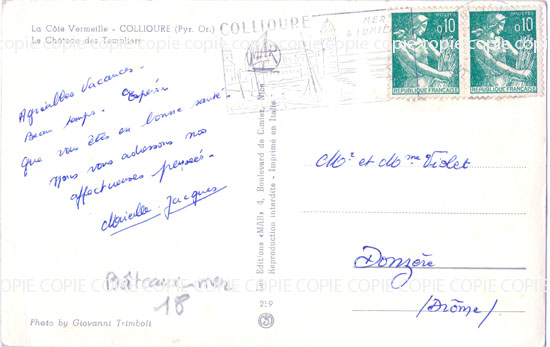 La Côte Vermeille - COLLIOURE (Pyr. Or.)
Le Château des Templiers
COLLIOURE
MER
LUMIÈRE
0,10
POSTES
0,10
REPUBLIQUE FRANÇAISE
REPUBLIQUE FRANÇAISE
COPIE COPIE COPIE COPIE COPIE COPIE COPIE
Agréables Vacances -
Beau temps. Espérons
Que vous êtes en bonne santé.
Nous vous adressons nos
affectueuses pensées -
Marielle Jacques
Les Editions «MAR» 4, Boulevard de Cimiez, Nice
Reproduction interdite - Imprimé en Italie
Mr et Mme Violet
Donzère
(Drôme)
Bâteaux-mer
18
259
Photo by Giovanni Trimboli